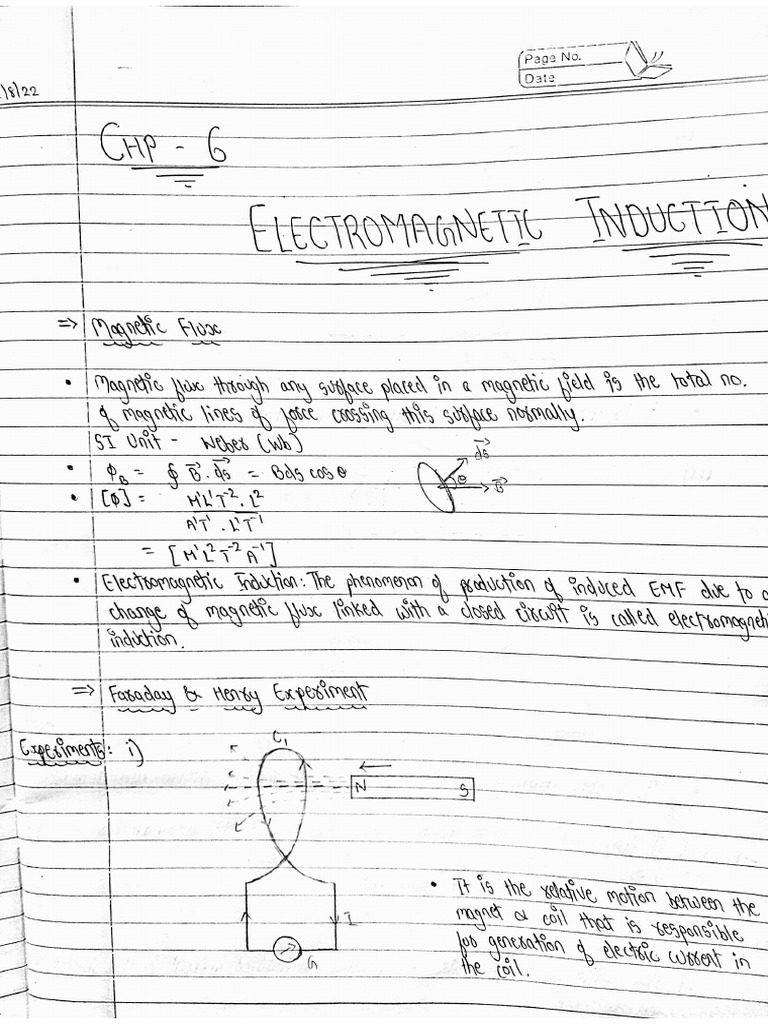 Page No.
Date
/8/22
CHP - 6
ELECTROMAGNETIC INDUCTION
⇒ Magnetic Flux
• Magnetic flux through any surface placed in a magnetic field is the total no.
of magnetic lines of force crossing this surface normally.
SI Unit - Weber (Wb)
• ϕ_B = ∮ B⃗ . ds⃗ = Bds cos θ
ds⃗
θ
B⃗
• [ϕ] = M¹L¹T⁻² . L²
A¹T¹ . L¹T⁻¹
= [M¹L²T⁻²A⁻¹]
• Electromagnetic Induction: The phenomenon of production of induced EMF due to a
change of magnetic flux linked with a closed circuit is called electromagneti
induction.
⇒ Faraday & Henry Experiment
Experiments: i)
C₁
N S
I
G
• It is the relative motion between the
magnet & coil that is responsible
for generation of electric current in
the coil.